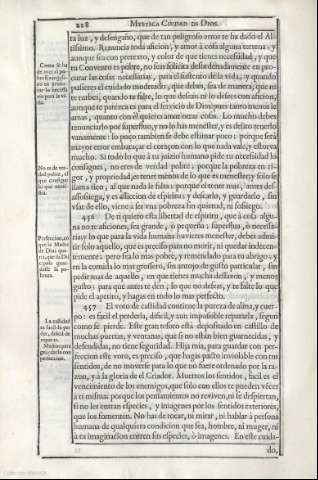 228 MYSTICA CIUDAD DE DIOS.
ta luz, y desengaño, que de tan peligroso amor te ha dado el Al-
tissimo. Renuncia toda aficion, y amor à cosa alguna terrena: y
aunque sea con pretexto, y color de que tienes necessidad, y que
tu Convento es pobre, no seas solicita desordenadamente en pro-
curar las cosas necessarias, para el sustento de la vida; y quando
pusieres el cuidado moderado, que debes, sea de manera; que ni
te turbes, quando te falte, lo que deseas ni lo desees con aficion,
aunque te parezca es para el servicio de Dios: pues tanto menos le
amas, quanto con él quieres amar otras cosas. Lo mucho debes
renunciarlo por superfluo, y no lo has menester, y es delito tenerlo
vanamente: lo poco tambien se debe estimar poco; porque serà
mayor error embaraçar el coraçon con lo que nada vale, y estorva
mucho. Si todo lo que à tu juizio humano pide tu necessidad lo
consigues, no eres de verdad pobre: porque la pobreza en ri-
gor, y propriedad, es tener menos de lo que es menester; y solo se
llama rico, al que nada le falta: porque el tener mas, antes des-
assosiega, y es afliccion de espiritu; y desearlo, y guardarlo, sin
usar de ello, viene à ser una pobreza sin quietud, ni sossiego.
456 De ti quiero esta libertad de espiritu, que à cosa algu-
na no te aficiones, sea grande, ò pequeña; superflua, ò necessa-
ria: y lo que para la vida humana huvieres menester, debes admi-
tir solo aquello, que es preciso para no morir, ni quedar indecen-
temente: pero sea lo mas pobre, y remendado para tu abrigo; y
en la comida lo mas grossero, sin antojo de gusto particular, sin
pedir mas de aquello, en que tienes mucha dessazon, y menos
gusto: para que antes te dén, lo que no deseas, y te falte lo que
pide el apetito, y hagas en todo lo mas perfecto.
457 El voto de castidad contiene la pureza de alma, y cuer-
po: es facil el perderla, dificil, y aun impossible repararla, segun
como se pierde. Este gran tesoro està depositado en castillo de
muchas puertas, y ventanas, que si no estàn bien guarnecidas, y
defendidas, no tiene seguridad. Hija mia, para guardar con per-
feccion este voto, es preciso, que hagas pacto inviolable con tus
sentidos, de no moverse para lo que no fuere ordenado por la ra-
zon, y à la gloria de el Criador. Muertos los sentidos, facil es el
vencimiento de los enemigos, que solo con ellos te pueden vécer
à ti misma: porque los pensamientos no reviven, ni se despiertan,
si no les entran especies, y imagenes por los sentidos exteriores,
que los fomenten. No has de tocar, ni mirar, ni hablar à persona
humana de qualquiera condicion que sea, hombre, ni muger, ni
à tu imaginacion entren sus especies, ò imagenes. En este cuida-
do,
Como se ha
No es de ver-
dad pobre, el
que consigue
lo que
de Dios
La castidad